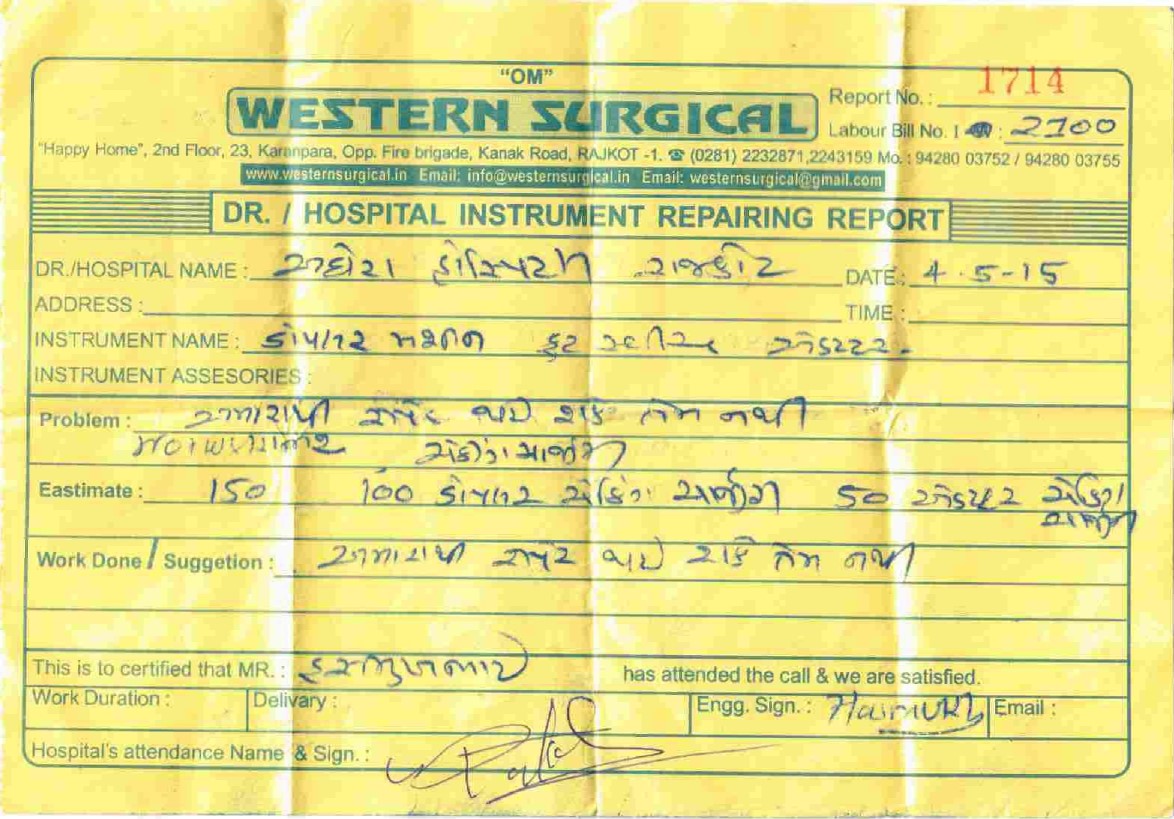 "OM"
WESTERN SURGICAL
Report No. : 1714
Labour Bill No. I : 2700
"Happy Home", 2nd Floor, 23, Karanpara, Opp. Fire brigade, Kanak Road, RAJKOT -1. ☎ (0281) 2232871,2243159 Mo. : 94280 03752 / 94280 03755
www.westernsurgical.in Email: info@westernsurgical.in Email: westernsurgical@gmail.com
DR. / HOSPITAL INSTRUMENT REPAIRING REPORT
DR./HOSPITAL NAME : હોસ્પિટલ રાજકોટ DATE : 4-5-15
ADDRESS : TIME :
INSTRUMENT NAME : મશીન ફુટ
INSTRUMENT ASSESORIES :
Problem : અમારાથી રીપેર થાઇ શકે તેમ નથી
ચેકીંગ ચાર્જીસ
Eastimate : 150 100 ચેકિંગ ચાર્જીસ 50 ચેકિંગ
ચાર્જીસ
Work Done / Suggetion : અમારાથી રીપેર થાઇ શકે તેમ નથી
This is to certified that MR. : હસમુખભાઇ has attended the call & we are satisfied.
Work Duration : Delivary : Engg. Sign. : Hasmukh Email :
Hospital's attendance Name & Sign. :